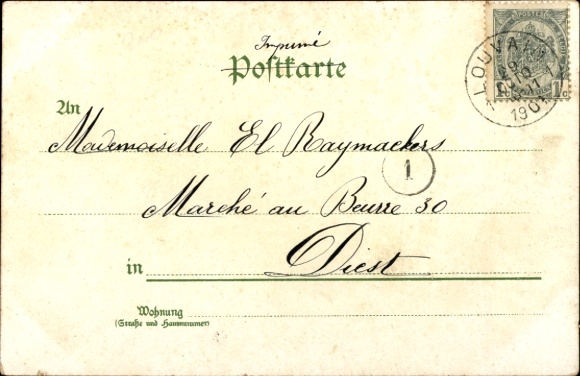 Imprimé
Postkarte
An
Mademoiselle El Raymaekers
1
Marché au Beurre 30
in Diest
Wohnung
(Straße und Hausnummer)
LOUVAIN
1901
1 c